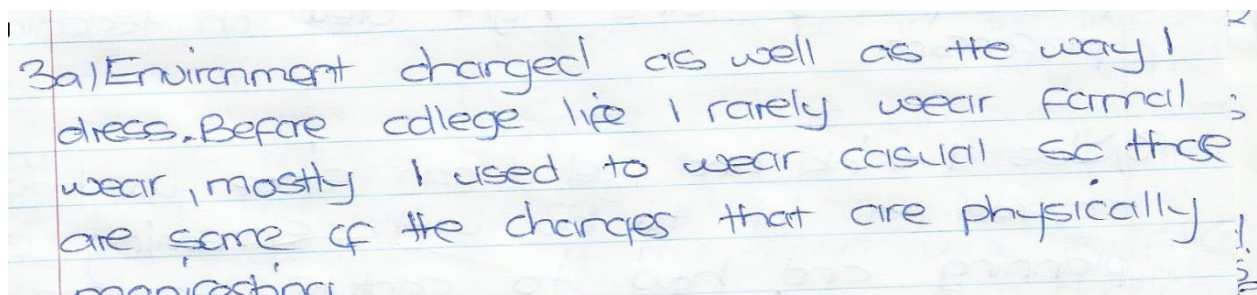 3a) Environment changed as well as the way I
dress. Before college life I rarely wear formal
wear, mostly I used to wear casual so those
are some of the changes that are physically
manifesting